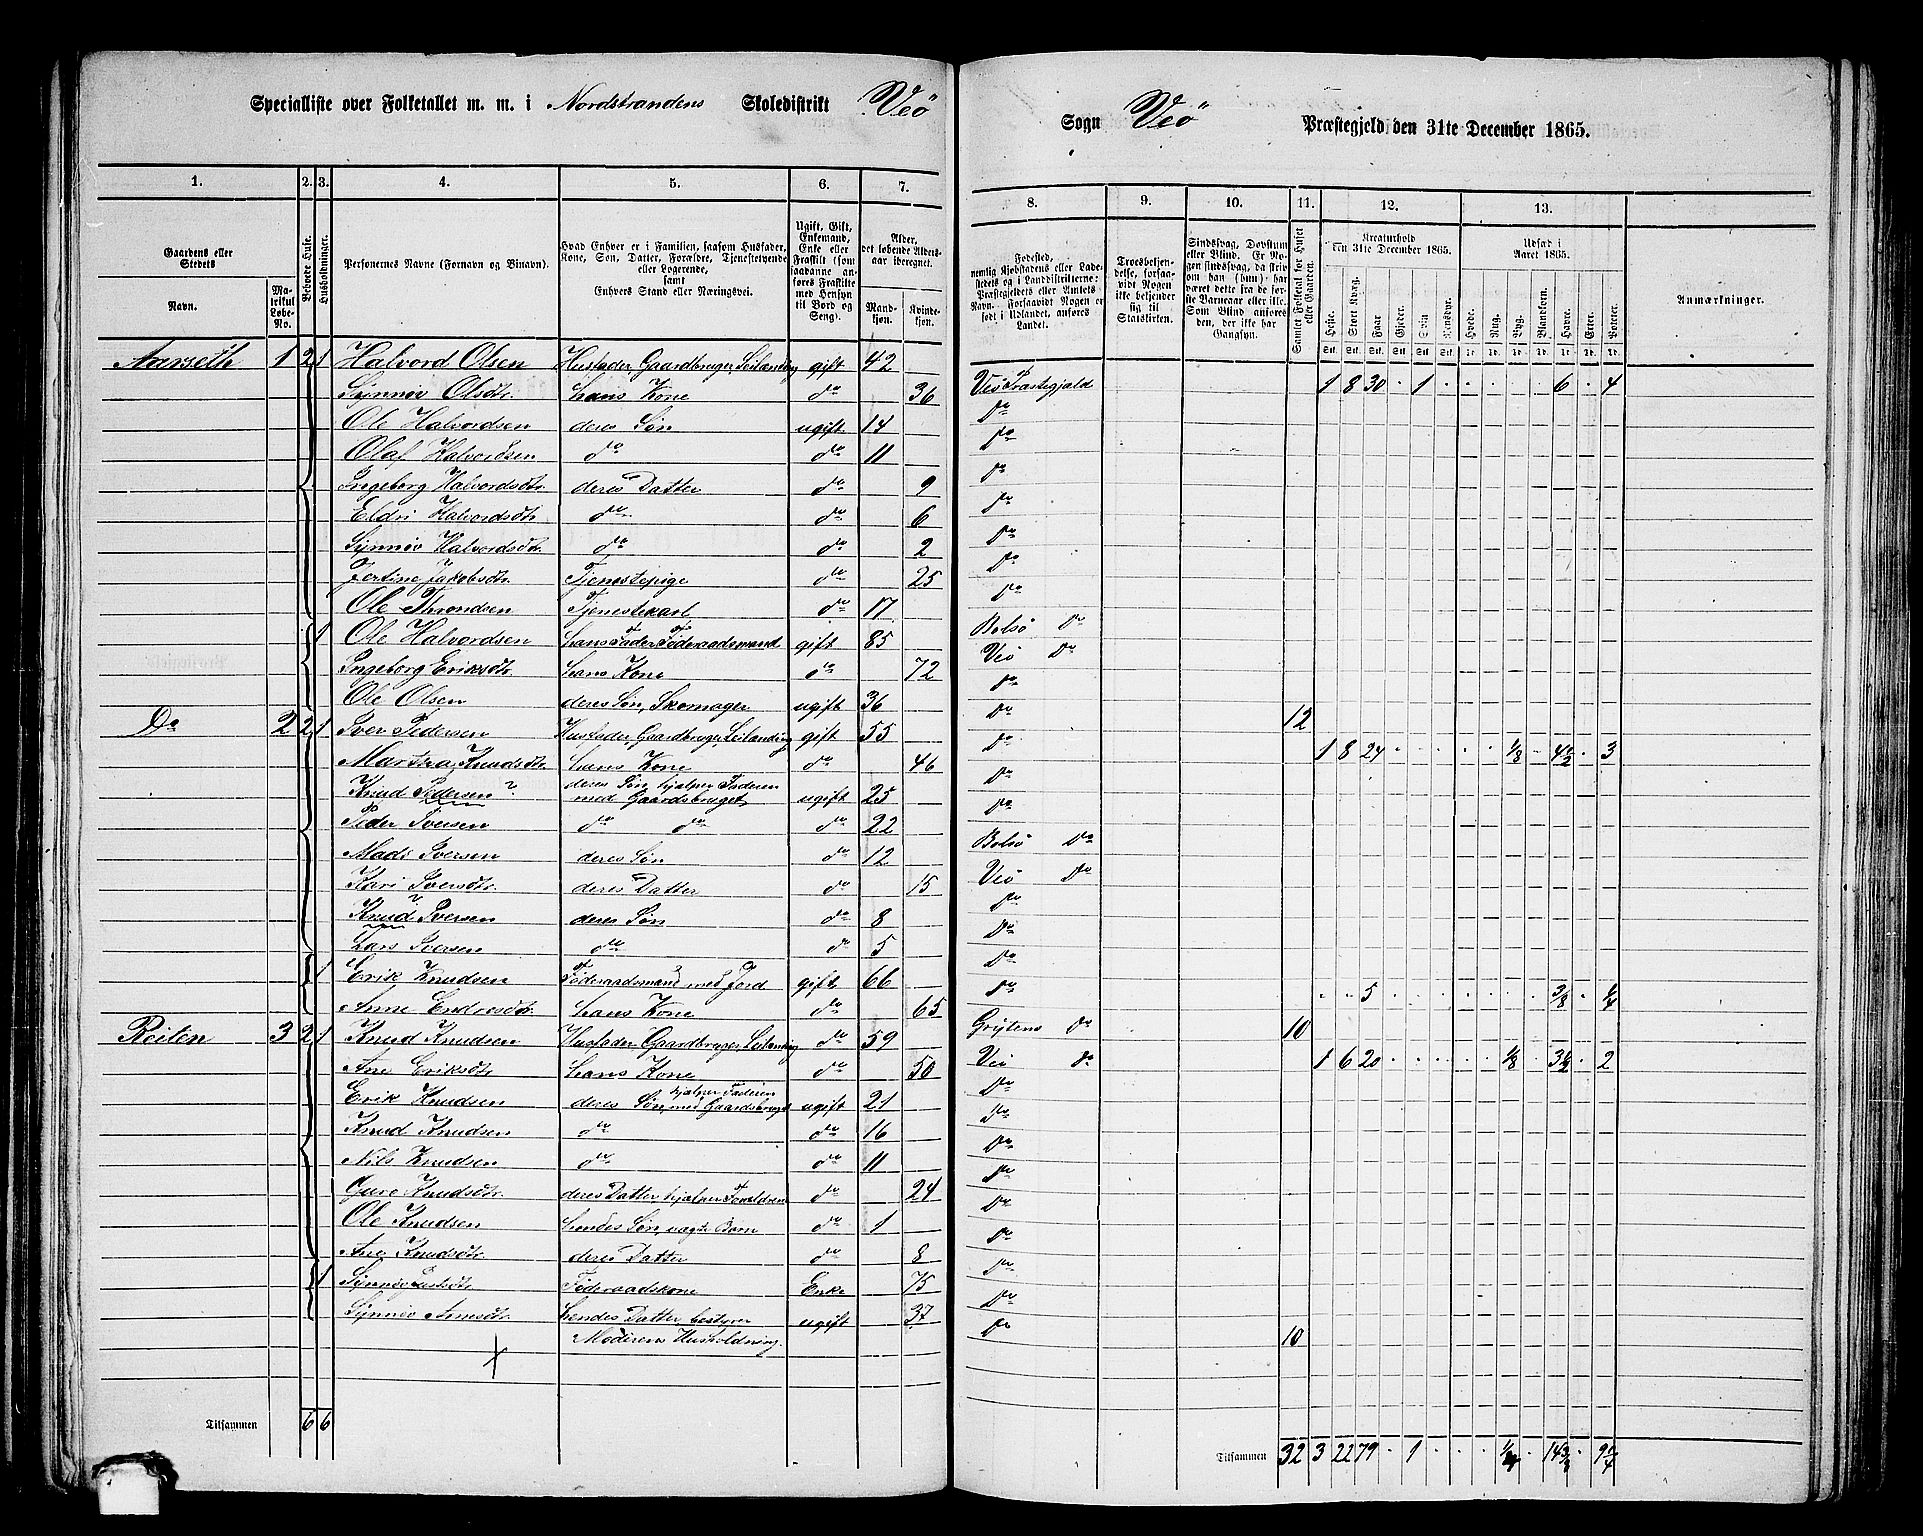 Specialliste over Folketallet m. m. i Nordstrandens Skoledistrikt Veö Sogn Veö Præstegjeld den 31te December 1865.
1. 2. 3. 4. 5. 6. 7. 8. 9. 10. 11. 12. 13.
Gaardens eller Stedets
Navn.
Matrikul Løbe-No.
Beboede Huse.
Husholdninger.
Personernes Navne (Fornavn og Binavn).
Hvad Enhver er i Familien, saasom Husfader, Kone, Søn, Datter, Forældre, Tjenestetyende eller Logerende, samt Enhvers Stand eller Næringsvei.
Ugift, Gift, Enkemand, Enke eller Fraskilt (som saadanne anføres Fraskilte med Hensyn til Bord og Seng).
Alder, det løbende Alders-aar iberegnet.
Mandkjøn. Kvindekjøn.
Fødested, nemlig Kjøbstadens eller Ladestedets og i Landdistrikterne: Præstegjeldets eller Amtets Navn. Forsaavidt Nogen er født i Udlandet, anføres Landet.
Troesbekjendelse, forsaavidt Nogen ikke bekjender sig til Statskirken.
Sindssvag, Døvstum eller Blind. Er Nogen sindssvag, da skrives om han (hun) har været dette fra de første Barneaar eller ikke. Som Blind anføres den, der ikke har Gangsyn.
Samlet Folketal for Huset eller Gaarden.
Kreaturhold den 31te December 1865.
Heste. Stort Kvæg. Faar. Gjeder. Svin. Rensdyr.
Udsæd i Aaret 1865.
Hvede. Rug. Byg. Blandkorn. Havre. Erter. Poteter.
Anmærkninger.
Aarseth 1 2 1 Halvord Olsen Husfader, Gaardbruger, Leilænding gift 42 Veö Præstegjæld 1 8 30 · 1 · · · · · 6 · 4
Synnöv Olsdtr. Hans Kone do 36 Do
Ole Halvordsen deres Søn ugift 14 Do
Olaf Halvordsen do do 11 Do
Ingeborg Halvordsdtr. deres Datter do 9 Do
Eldri Halvordsdtr. do do 6 Do
Synnöv Halvordsdtr. do do 2 Do
Jertine Jakobsdtr. Tjenestepige do 25 Do
Ole Throndsen Tjenestekarl do 17 Bolsö Do
1 Ole Halvordsen hans Fader, Föderaadsmand gift 85 Veö Do
Ingeborg Eriksdtr. hans Kone do 72 Do
Ole Olsen deres Søn, Skomager ugift 36 Do 12
Do 2 2 1 Iver Pedersen Husfader, Gaardbruger, Leilænding gift 55 Do 1 8 24 · · · · · 1/8 · 4 1/2 · 3
Martha Knudsdtr. hans Kone do 46 Do
Knud Pedersen ? deres Søn, hjælper Faderen med Gaardsbruget ugift 25 Do
Peder Iversen do do do 22 Bolsö Do
Mads Iversen deres Søn do 12 Veö Do
Kari Iversdtr. deres Datter do 15 Do
Knud ? Iversen deres Søn do 8 Do
Lars Iversen do do 5 Do
1 Erik Knudsen Föderaadsmand med Jord gift 66 Do · · 5 · · · · · · · 3/8 · 1/4
Anne Endresdtr. hans Kone do 65 Grytens Do 10
Reiten 3 2 1 Knud Knudsen Husfader, Gaardbruger, Leilænding do 59 Veö Do 1 6 20 · · · · · 1/8 · 3 1/2 · 2
Ane Eriksdtr. hans Kone do 50 Do
Erik Knudsen deres Søn, hjælper Faderen med Gaardsbruget ugift 21 Do
Knud Knudsen do do 16 Do
Nils Knudsen do do 11 Do
Guro Knudsdtr. deres Datter, hjælper Forældrene do 24 Do
Ole Knudsen hendes Søn, uægte Barn do 1 Do
Ane Knudsdtr. deres Datter do 8 Do
1 Synnöv Föderaadskone Enke 75 Do
Synnöv Arnesdtr. hendes Datter, bestyrer Moderens Husholdning. ugift 37 Do 10
Tilsammen 6 6
Tilsammen 32 3 22 79 · 1 · · · 1/4 · 14 3/8 · 9 1/4